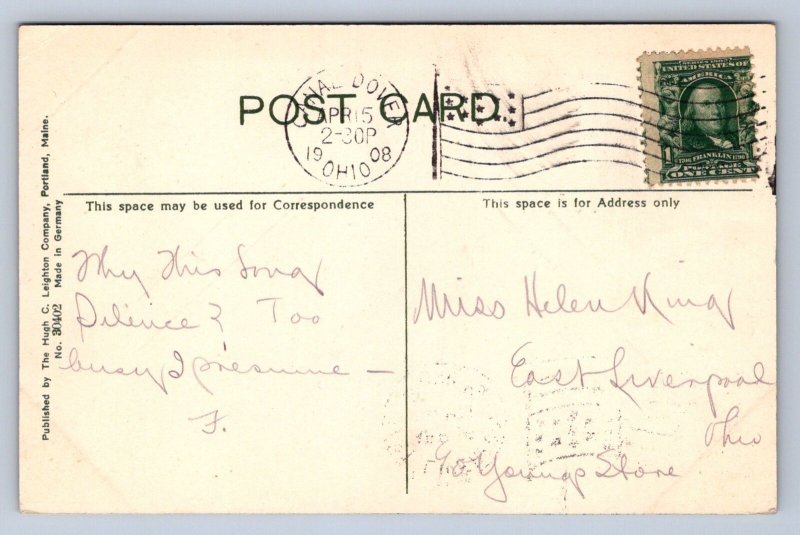 POST CARD.
CANAL DOVER
APR 15
2-30P
1908
OHIO
SERIES 1902
UNITED STATES OF
AMERICA
1706 FRANKLIN 1790
POSTAGE
ONE CENT
Published by The Hugh C. Leighton Company, Portland, Maine.
No. 30402 Made in Germany
This space may be used for Correspondence
Why this long
Silence? Too
busy I presume —
F.
This space is for Address only
Miss Helen King
East Liverpool
Ohio
c/o Youngs Store